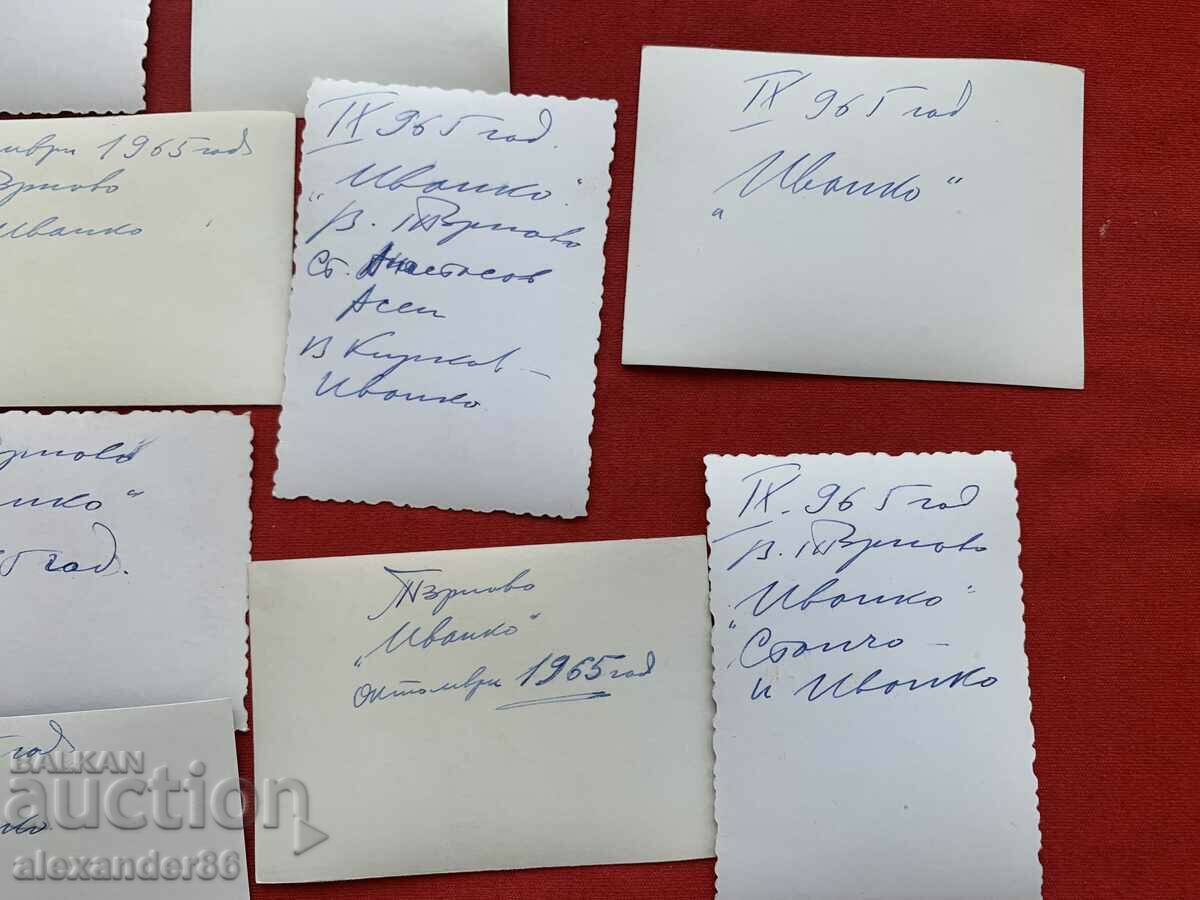 мври 1965 год
ърново
Иванко
IX 965 год.
"Иванко"
В. Търново
Ст. Анастасов
Асен
В Кирков –
Иванко
IX 965 год
"Иванко"
ърново
нко"
5 год.
Търново
"Иванко"
октомври 1965 год
IX. 965 год
В. Търново
"Иванко"
Станчо –
и Иванко
год
ко.
BALKAN
auction
alexander86